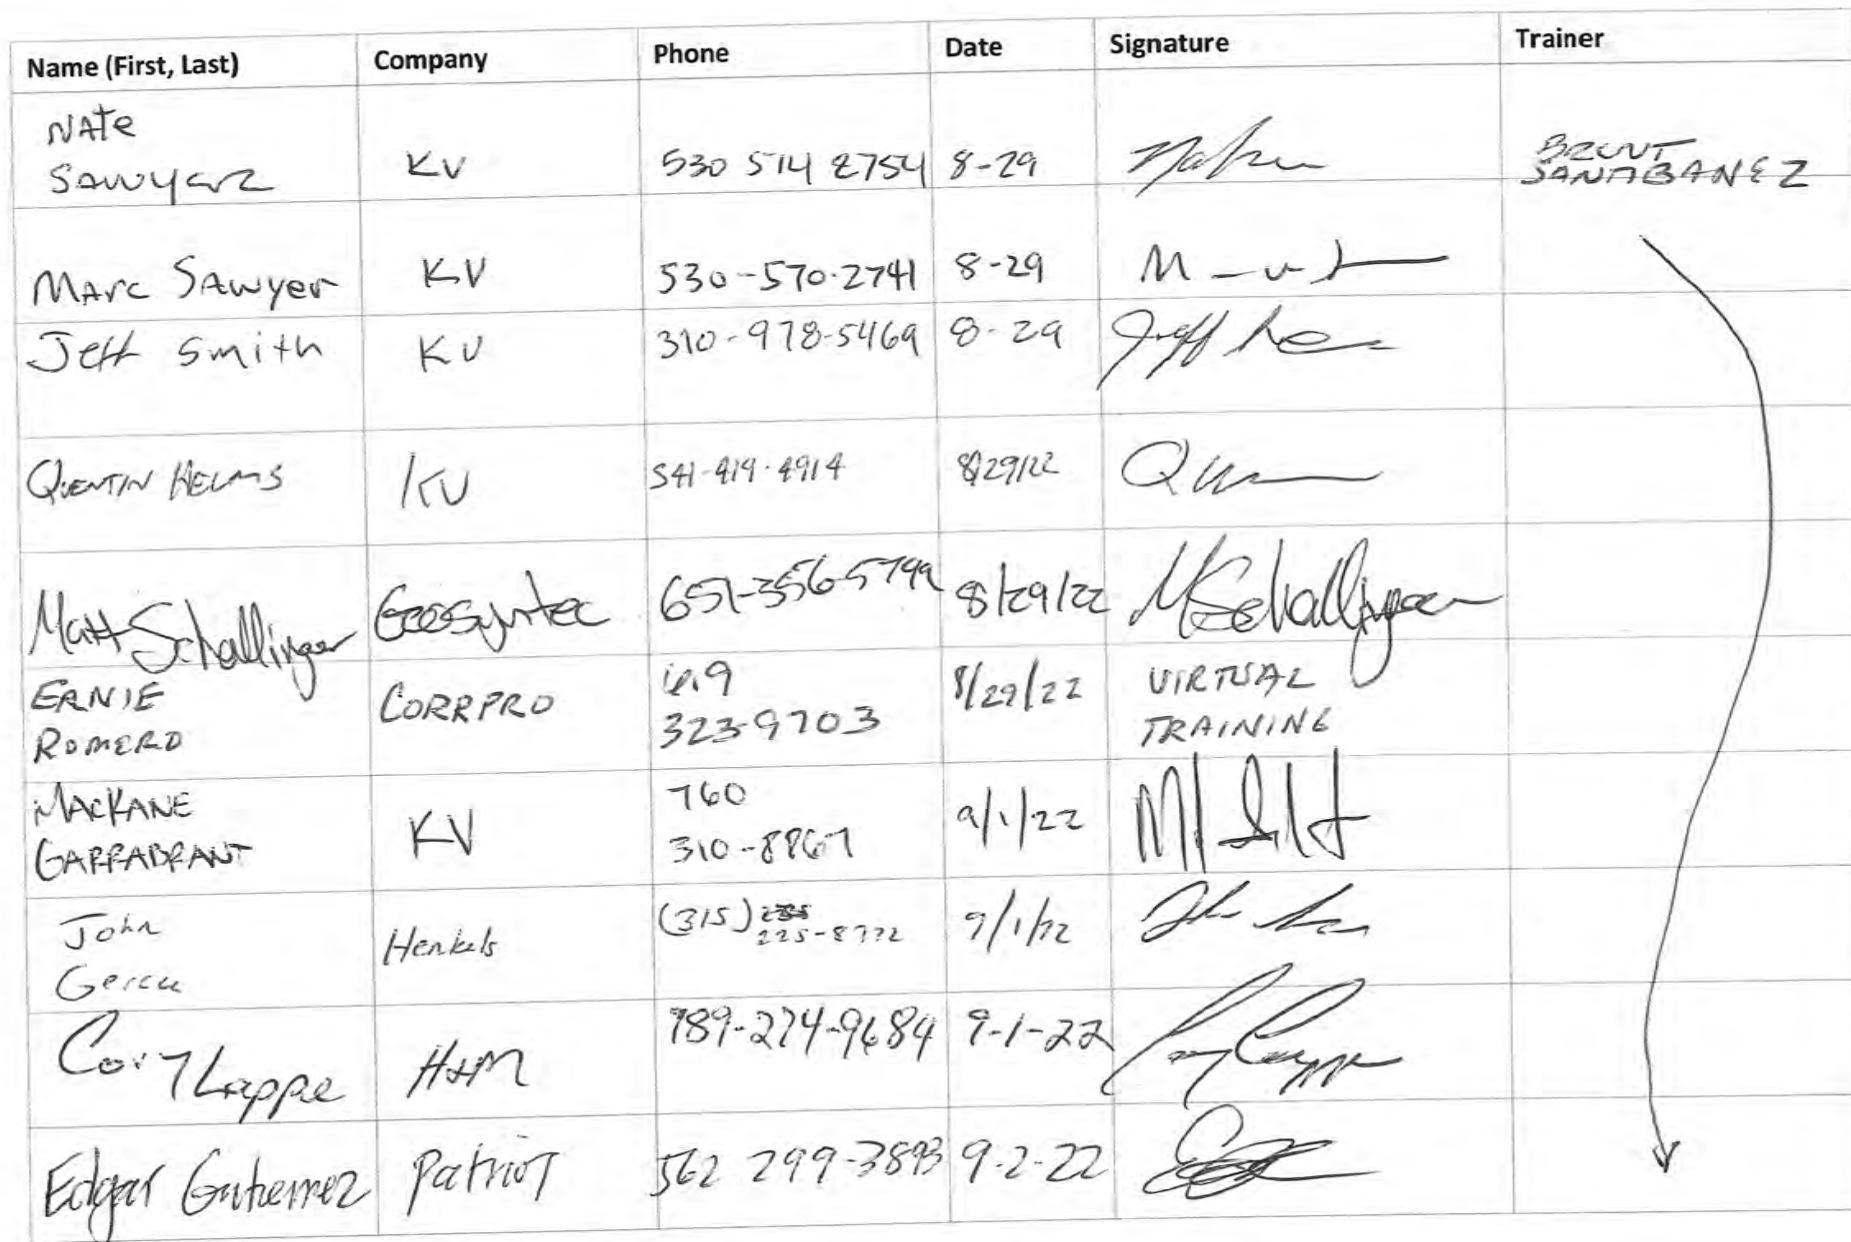 Name (First, Last) Company Phone Date Signature Trainer
NATE
SAWYER KV 530 514 2754 8-29 BRENT
SANABANEZ
MArc SAwyer KV 530-570-2741 8-29
Jeff Smith KV 310-978-5469 8-29
QUENTIN HELMS KV 541-419-4914 8/29/22
Matt Schallinger Geosyntec 651-356-5799 8/29/22 MSchallinger
ERNIE
ROMERO CORRPRO 619
323-9703 8/29/22 VIRTUAL
TRAINING
MACKANE
GARRABRANT KV 760
310-8867 9/1/22
John Henkels (315)
225-8772 9/1/22
Cory Lappe H&M 989-274-9684 9-1-22
Edgar Gutierrez Patriot 562 299-3893 9-2-22